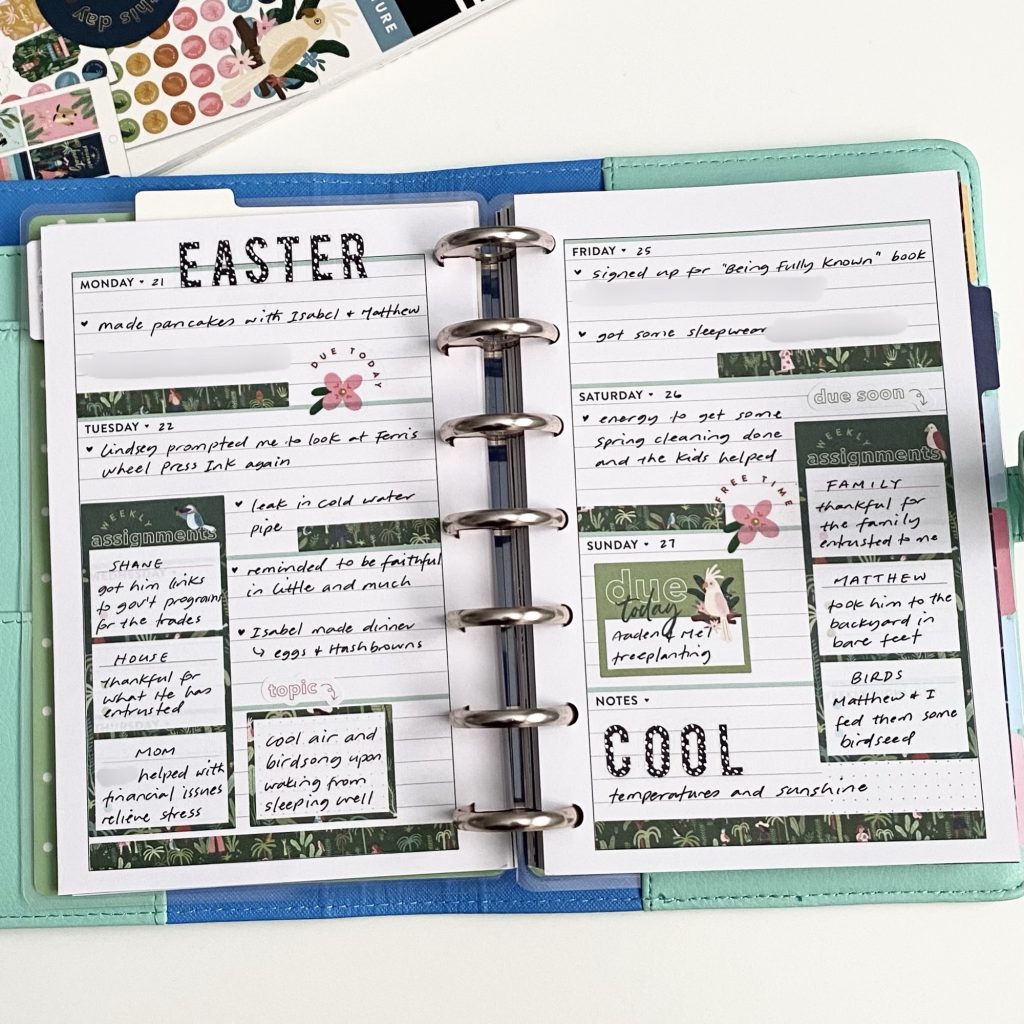 this day
TURE
EASTER
MONDAY ♥ 21
♥ made pancakes with Isabel + Matthew
DUE TODAY
TUESDAY ♥ 22
♥ Lindsey prompted me to look at Ferris
Wheel Press Ink again
♥ leak in cold water
pipe
WEEKLY
assignments
SHANE
got him links
to gov't programs
for the trades
HOUSE
thankful for
what He has
entrusted
MOM
helped with
financial issues
relieve stress
♥ reminded to be faithful
in little and much
♥ Isabel made dinner
↳ eggs + Hashbrowns
THURSDAY
topic
cool air and
birdsong upon
waking from
sleeping well
FRIDAY ♥ 25
♥ signed up for "Being Fully Known" book
♥ got some sleepwear
SATURDAY ♥ 26
due soon
♥ energy to get some
spring cleaning done
and the kids helped
FREE TIME
SUNDAY ♥ 27
due
today
Aaden + Me?
treeplanting
WEEKLY
assignments
FAMILY
thankful for
the family
entrusted to me
MATTHEW
took him to the
backyard in
bare feet
BIRDS
Matthew + I
fed them some
birdseed
NOTES ♥
COOL
temperatures and sunshine